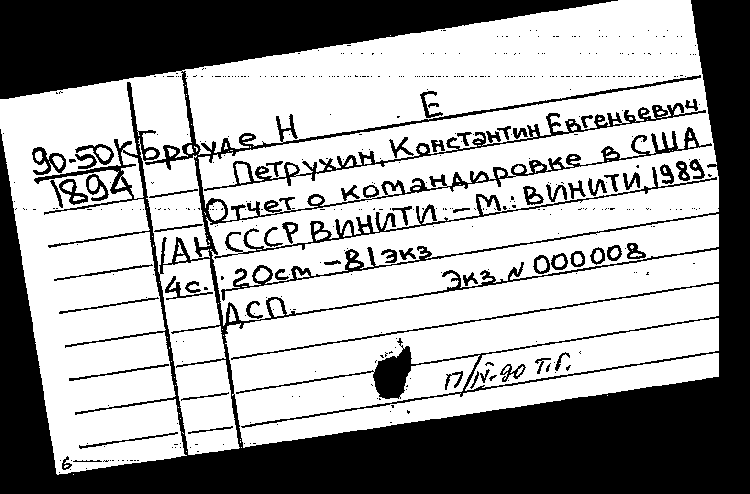 90-50К Броуде, Н Е
1894 Петрухин, Константин Евгеньевич
Отчет о командировке в США
/АН СССР, ВИНИТИ. – М.: ВИНИТИ, 1989.–
4с. ; 20см – 81экз
ДСП. Экз. № 000008
П/IV-90 Т.Г.
6